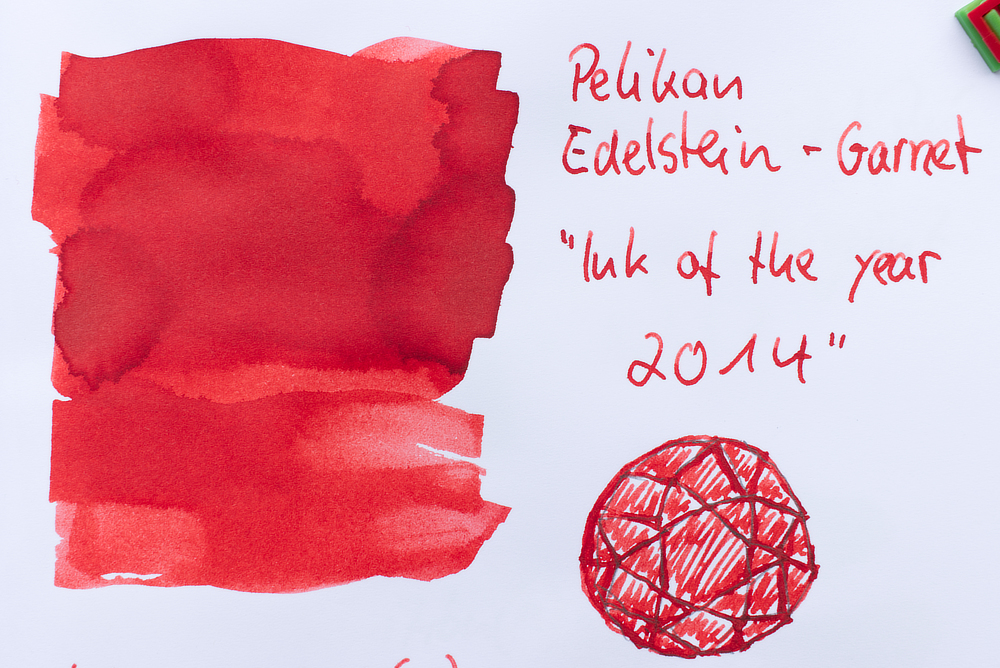 Pelikan
Edelstein - Garnet
"Ink of the year
2014"